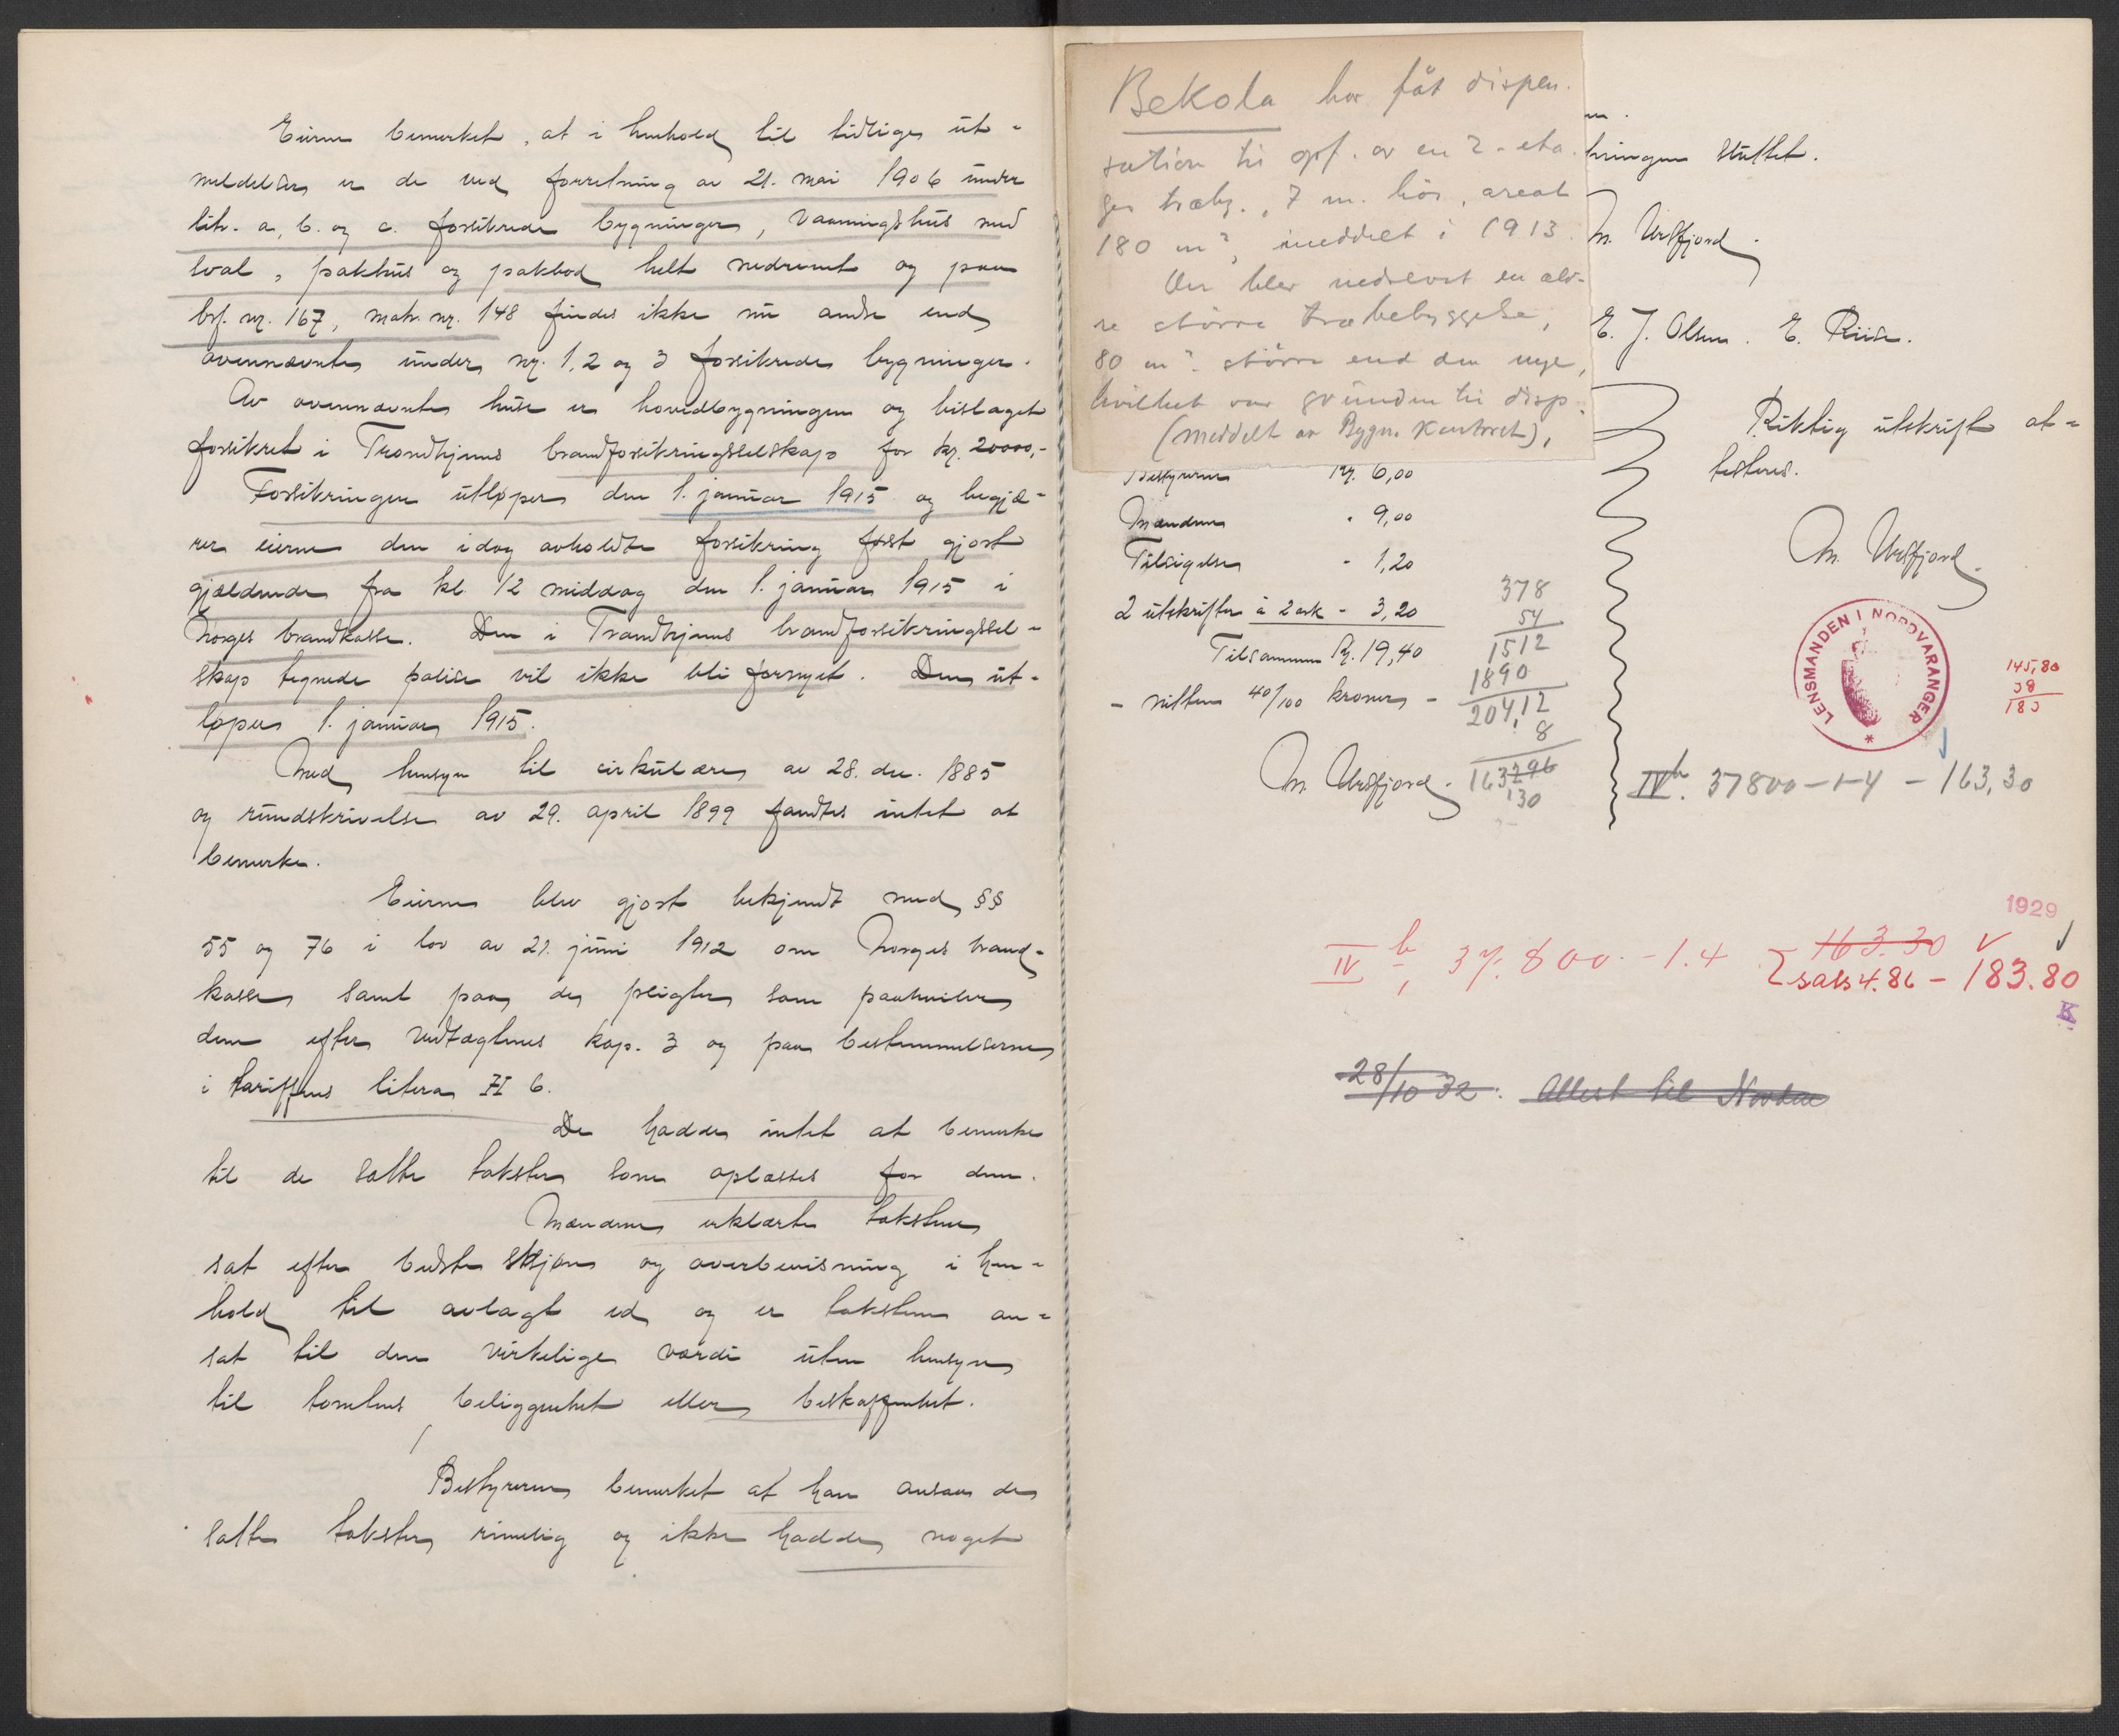 Eierne bemerket, at i henhold til tidligere ut-
meldelser er de ved forretning av 21. mai 1906 under
litr. a, b. og c. forsikrede bygninger, vaaningshus med
sval, pakhus og pakbod helt nedrevet og paa
brf. nr. 167, matr. nr. 148 findes ikke nu andre end
ovennævnte under nr. 1, 2 og 3 forsikrede bygninger.
Av ovennævnte huse er hovedbygningen og bislaget
forsikret i Trondhjems brandforsikringsselskap for kr. 20000,-
Forsikringen utløper den 1. januar 1915 og begjæ-
rer eierne den idag avholdte forsikring først gjort
gjældende fra kl. 12 middag den 1. januar 1915 i
Norges brandkasse. Den i Trondhjems brandforsikringssel-
skap tegnede polise vil ikke bli fornyet. Den ut-
løper 1. januar 1915.
Med hensyn til cirkulære av 28. dec. 1885
og rundskrivelse av 29. april 1899 fandtes intet at
bemerke.
Eierne blev gjort bekjendt med §§
55 og 76 i lov av 21. juni 1912 om Norges brand-
kasse samt paa de pligter som paahviler
dem efter vedtægternes kap. 3 og paa bestemmelserne
i tariffens litera H 6.
De hadde intet at bemerke
til de satte takster som oplæstes for dem.
Mændene erklærte taksterne
sat efter bedste skjøn og overbevisning i hen-
hold til avlagt ed og er taksterne an-
sat til den virkelige værdi uten hensyn
til tomtens beliggenhet eller beskaffenhet.
Bestyreren bemerket at han ansaa de
satte takster rimelig og ikke hadde noget
Bekola har fåt dispen-
sation til opf. av en 2-eta-
ges træby., 7 m. høi, areal
180 m², meddelt i 1913.
Der blev nedrevet en æld-
re større træbebyggelse,
80 m² større end den nye,
hvilket var grunden til disp.
(meddelt av Bygn. Kontoret),
kringen sluttet.
M. Ursfjord.
E. J. Olsen. E. Riise.
Bestyreren Kr. 6,00
Mændene " 9,00
Tilsigelse - 1,20
2 utskrifter à 2 ark - 3,20
Tilsammen Kr. 19,40
- nitten 40/100 kroner -
M. Ursfjord.
378
54
1512
1890
204,12
8
163296
130
Riktig utskrift at-
testeres.
M. Ursfjord.
LENSMANDEN I NORDVARANGER
145,80
38
183
IVb. 37800-1-4 - 163,30
1929
IVb, 37.800.-1.4 163.30
sats 4.86 - 183.80
K
28/10 32: Attest til Norden